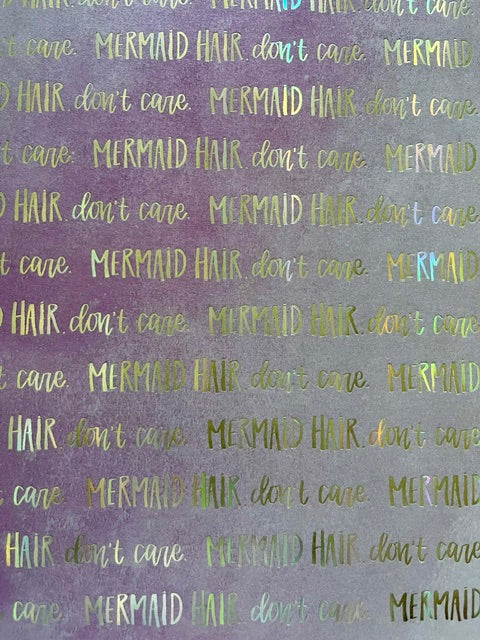 MERMAID HAIR. don't care.
t care. MERMAID HAIR. don't care. MERMAID
HAIR. don't care. MERMAID HAIR. don't care.
t care. MERMAID HAIR. don't care. MERMAID
HAIR. don't care. MERMAID HAIR. don't care.
t care. MERMAID HAIR. don't care. MERMAID
HAIR. don't care. MERMAID HAIR. don't care.
t care. MERMAID HAIR. don't care. MERMAID
HAIR. don't care. MERMAID HAIR. don't care
t care. MERMAID HAIR. don't care. MERMAID
HAIR. don't care. MERMAID HAIR. don't care
t care. MERMAID HAIR. don't care. MERMAID